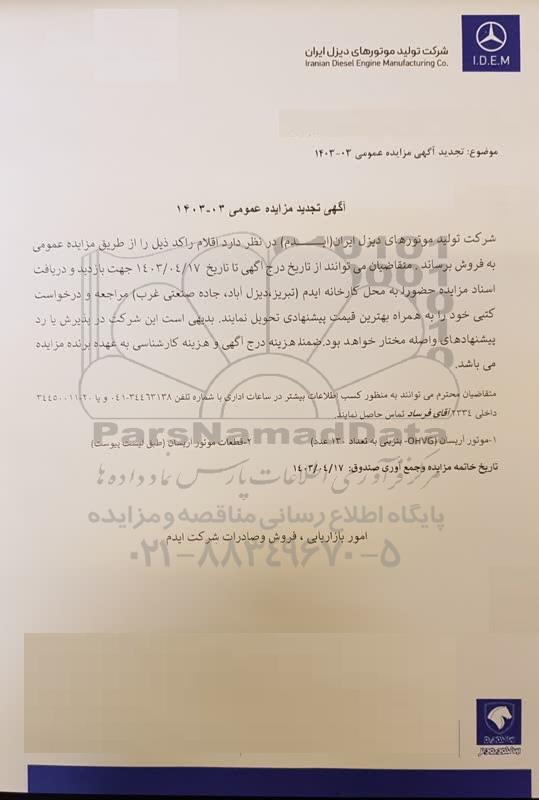 شرکت تولید موتورهای دیزل ایران
Iranian Diesel Engine Manufacturing Co.
I.D.E.M
موضوع: تجدید آگهی مزایده عمومی ۰۳-۱۴۰۳
آگهی تجدید مزایده عمومی ۰۳-۱۴۰۳
شرکت تولید موتورهای دیزل ایران(ایدم) در نظر دارد اقلام راکد ذیل را از طریق مزایده عمومی
به فروش برساند . متقاضیان می توانند از تاریخ درج آگهی تا تاریخ ۱۴۰۳/۰۴/۱۷ جهت بازدید و دریافت
اسناد مزایده حضورا، به محل کارخانه ایدم (تبریز،دیزل آباد، جاده صنعتی غرب) مراجعه و درخواست
کتبی خود را به همراه بهترین قیمت پیشنهادی تحویل نمایند. بدیهی است این شرکت در پذیرش یا رد
پیشنهادهای واصله مختار خواهد بود.ضمنا هزینه درج آگهی و هزینه کارشناسی به عهده برنده مزایده
می باشد.
متقاضیان محترم می توانند به منظور کسب اطلاعات بیشتر در ساعات اداری با شماره تلفن ۳۴۴۶۳۱۳۸-۰۴۱ و یا ۲۰-۳۴۴۵۰۰۱۱
داخلی ۲۳۳۴ آقای فرساد تماس حاصل نمایند.
۱-موتور آریسان (OHVG- بنزینی به تعداد ۱۳۰ عدد) ۲-قطعات موتور آریسان (طبق لیست پیوست)
تاریخ خاتمه مزایده وجمع آوری صندوق: ۱۴۰۳/۰۴/۱۷
امور بازاریابی ، فروش وصادرات شرکت ایدم
ParsNamadData
مرکز فرآوری اطلاعات پارس نماد داده ها
پایگاه اطلاع رسانی مناقصه و مزایده
۰۲۱-۸۸۳۴۹۶۷۰-۵